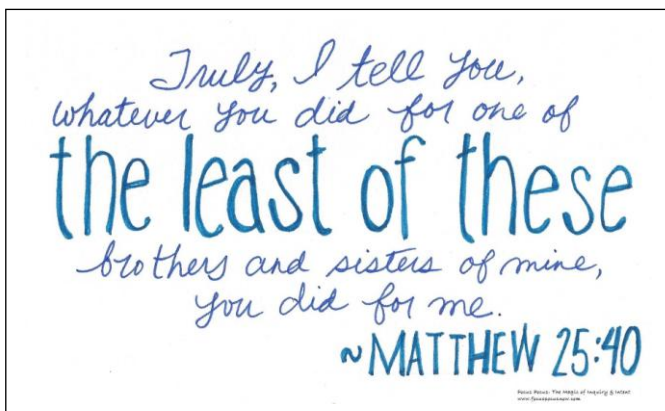 Truly, I tell you,
whatever you did for one of
the least of these
brothers and sisters of mine,
you did for me.
~MATTHEW 25:40
Pocus Pocus: The Magic of Inquiry & Intent